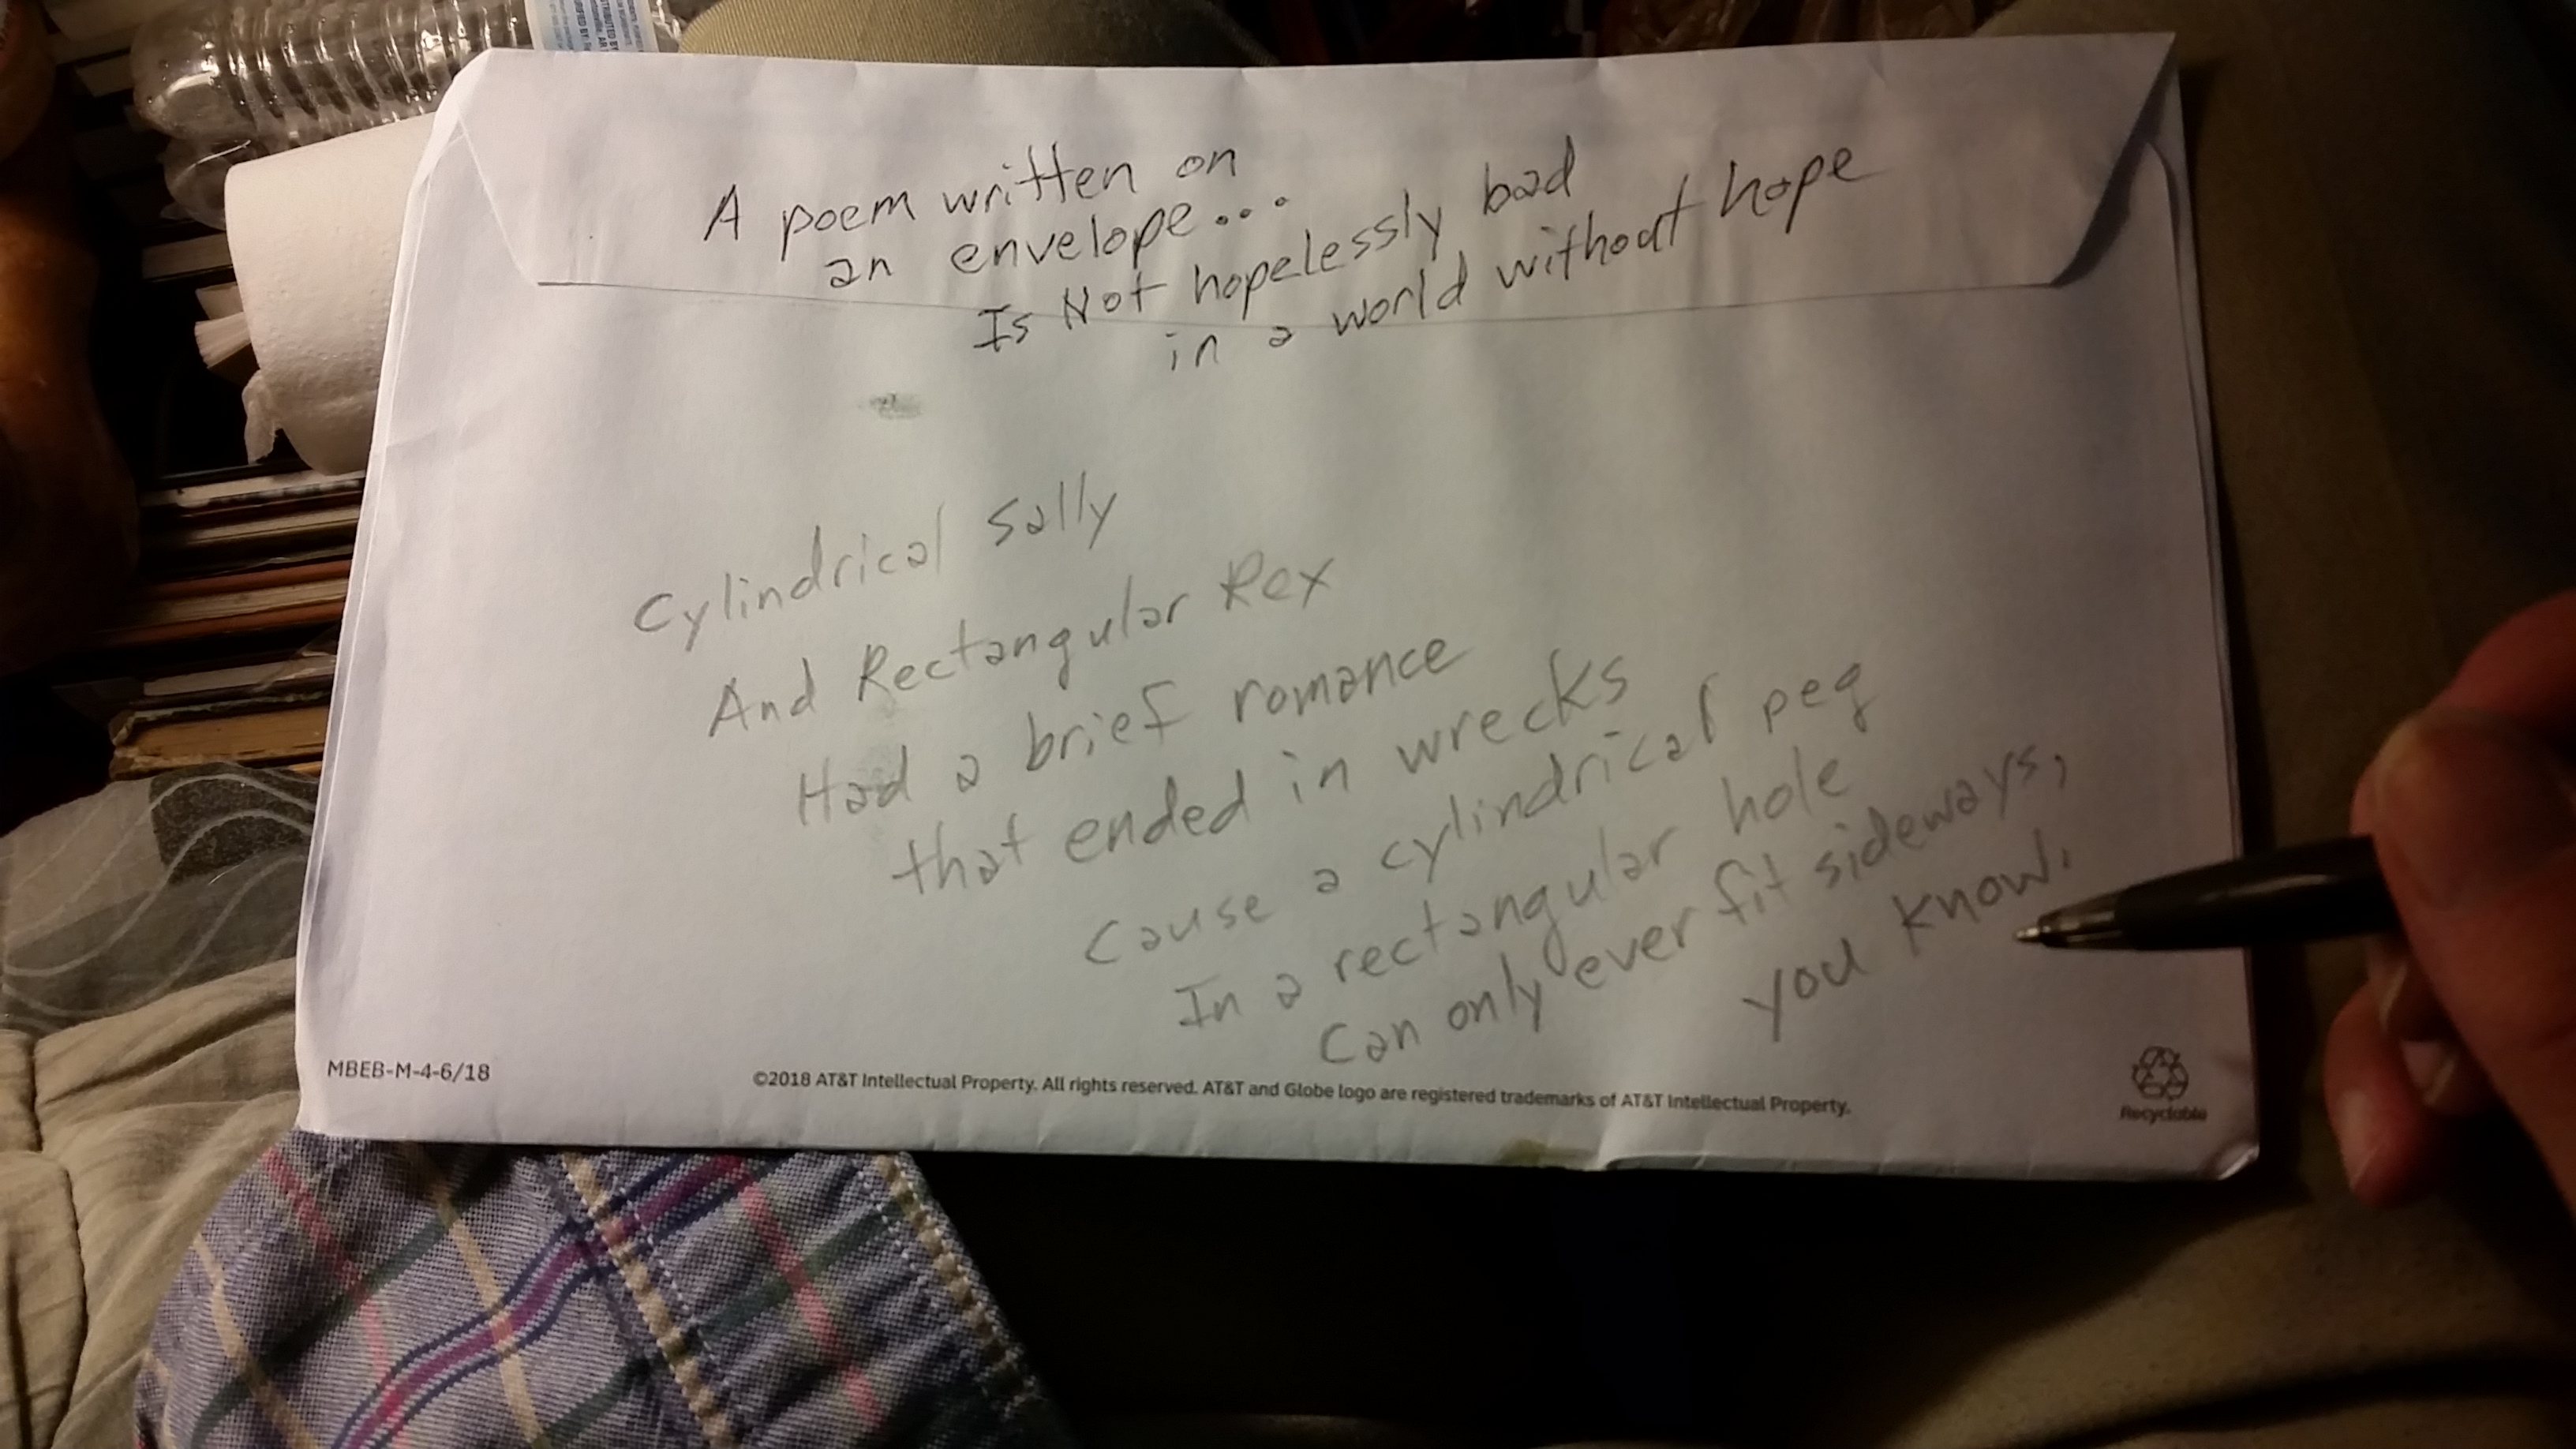 A poem written on
an envelope...
Is Not hopelessly bad
in a world without hope
Cylindrical Sally
And Rectangular Rex
Had a brief romance
that ended in wrecks
Cause a cylindrical peg
In a rectangular hole
Can only ever fit sideways,
you know.
MBEB-M-4-6/18
©2018 AT&T Intellectual Property. All rights reserved. AT&T and Globe logo are registered trademarks of AT&T Intellectual Property.
Recyclable